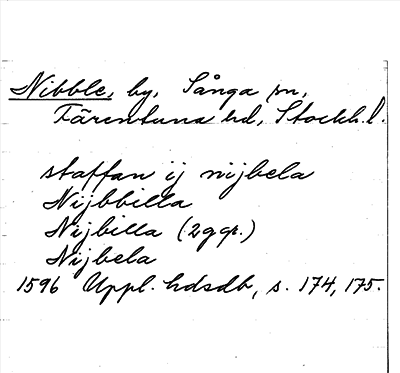 Nibble, by, Sånga sn,
Färentuna hd, Stockh. l.
staffan ij nijbela
Nijbbilla
Nijbilla (2 ggr.)
Nijbela
1596 Uppl. hdsdb, s. 174, 175.